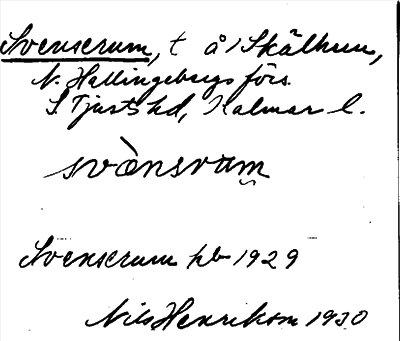 Svenserum, t å /Skälhem,
N. Hallingebergs förs.
S. Tjusts hd, Kalmar l.
svὰnsram̮
Svenserum pb 1929
Nils Henrikson 1930